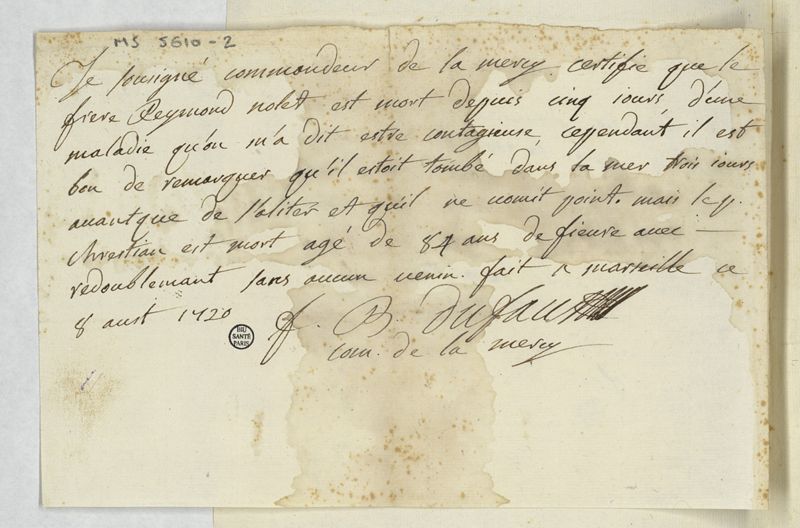 MS 5610-2
Je sousigné commandeur de la mercy certifie que le
frere Reymond nolet est mort depuis cinq iours d'une
maladie qu'on m'a dit estre contagieuse, cependant il est
bon de remarquer qu'il estoit tombé dans la mer trois iours
auantque de s'aliter et qu'il ne vomit point. mais le p.
chrestian est mort agé de 84 ans de fieure auec
redoublemant sans aucun uenin. fait a marseille ce
8 aust 1720
BIU
SANTÉ
PARIS
f. B. Dufau
com. de la mercy